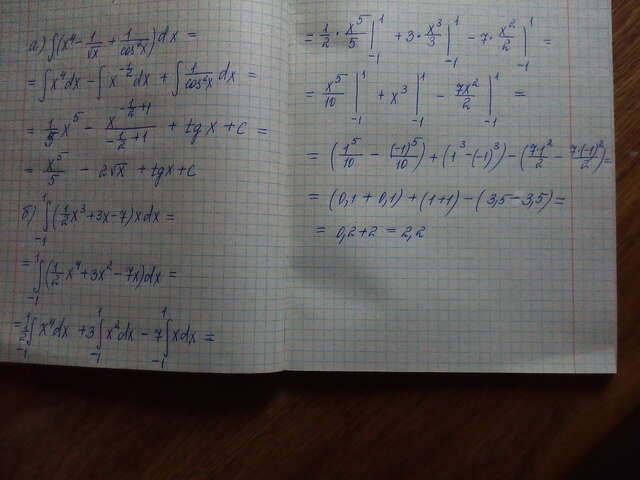 а) ∫(x⁴ - 1/√x + 1/cos²x)dx =
= ∫x⁴dx - ∫x^(-1/2)dx + ∫1/cos²x dx =
= 1/5 x⁵ - x^(-1/2+1)/(-1/2+1) + tg x + c =
= x⁵/5 - 2√x + tgx + c
б) ∫₋₁¹(1/2 x³ + 3x - 7)xdx =
= ∫₋₁¹(1/2 x⁴ + 3x² - 7x)dx =
= 1/2 ∫₋₁¹ x⁴dx + 3∫₋₁¹ x²dx - 7∫₋₁¹ xdx =
= 1/2 · x⁵/5 |₋₁¹ + 3 · x³/3 |₋₁¹ - 7 · x²/2 |₋₁¹ =
= x⁵/10 |₋₁¹ + x³ |₋₁¹ - 7x²/2 |₋₁¹ =
= (1⁵/10 - (-1)⁵/10) + (1³ - (-1)³) - (7·1²/2 - 7·(-1)²/2) =
= (0,1 + 0,1) + (1+1) - (3,5 - 3,5) =
= 0,2 + 2 = 2,2